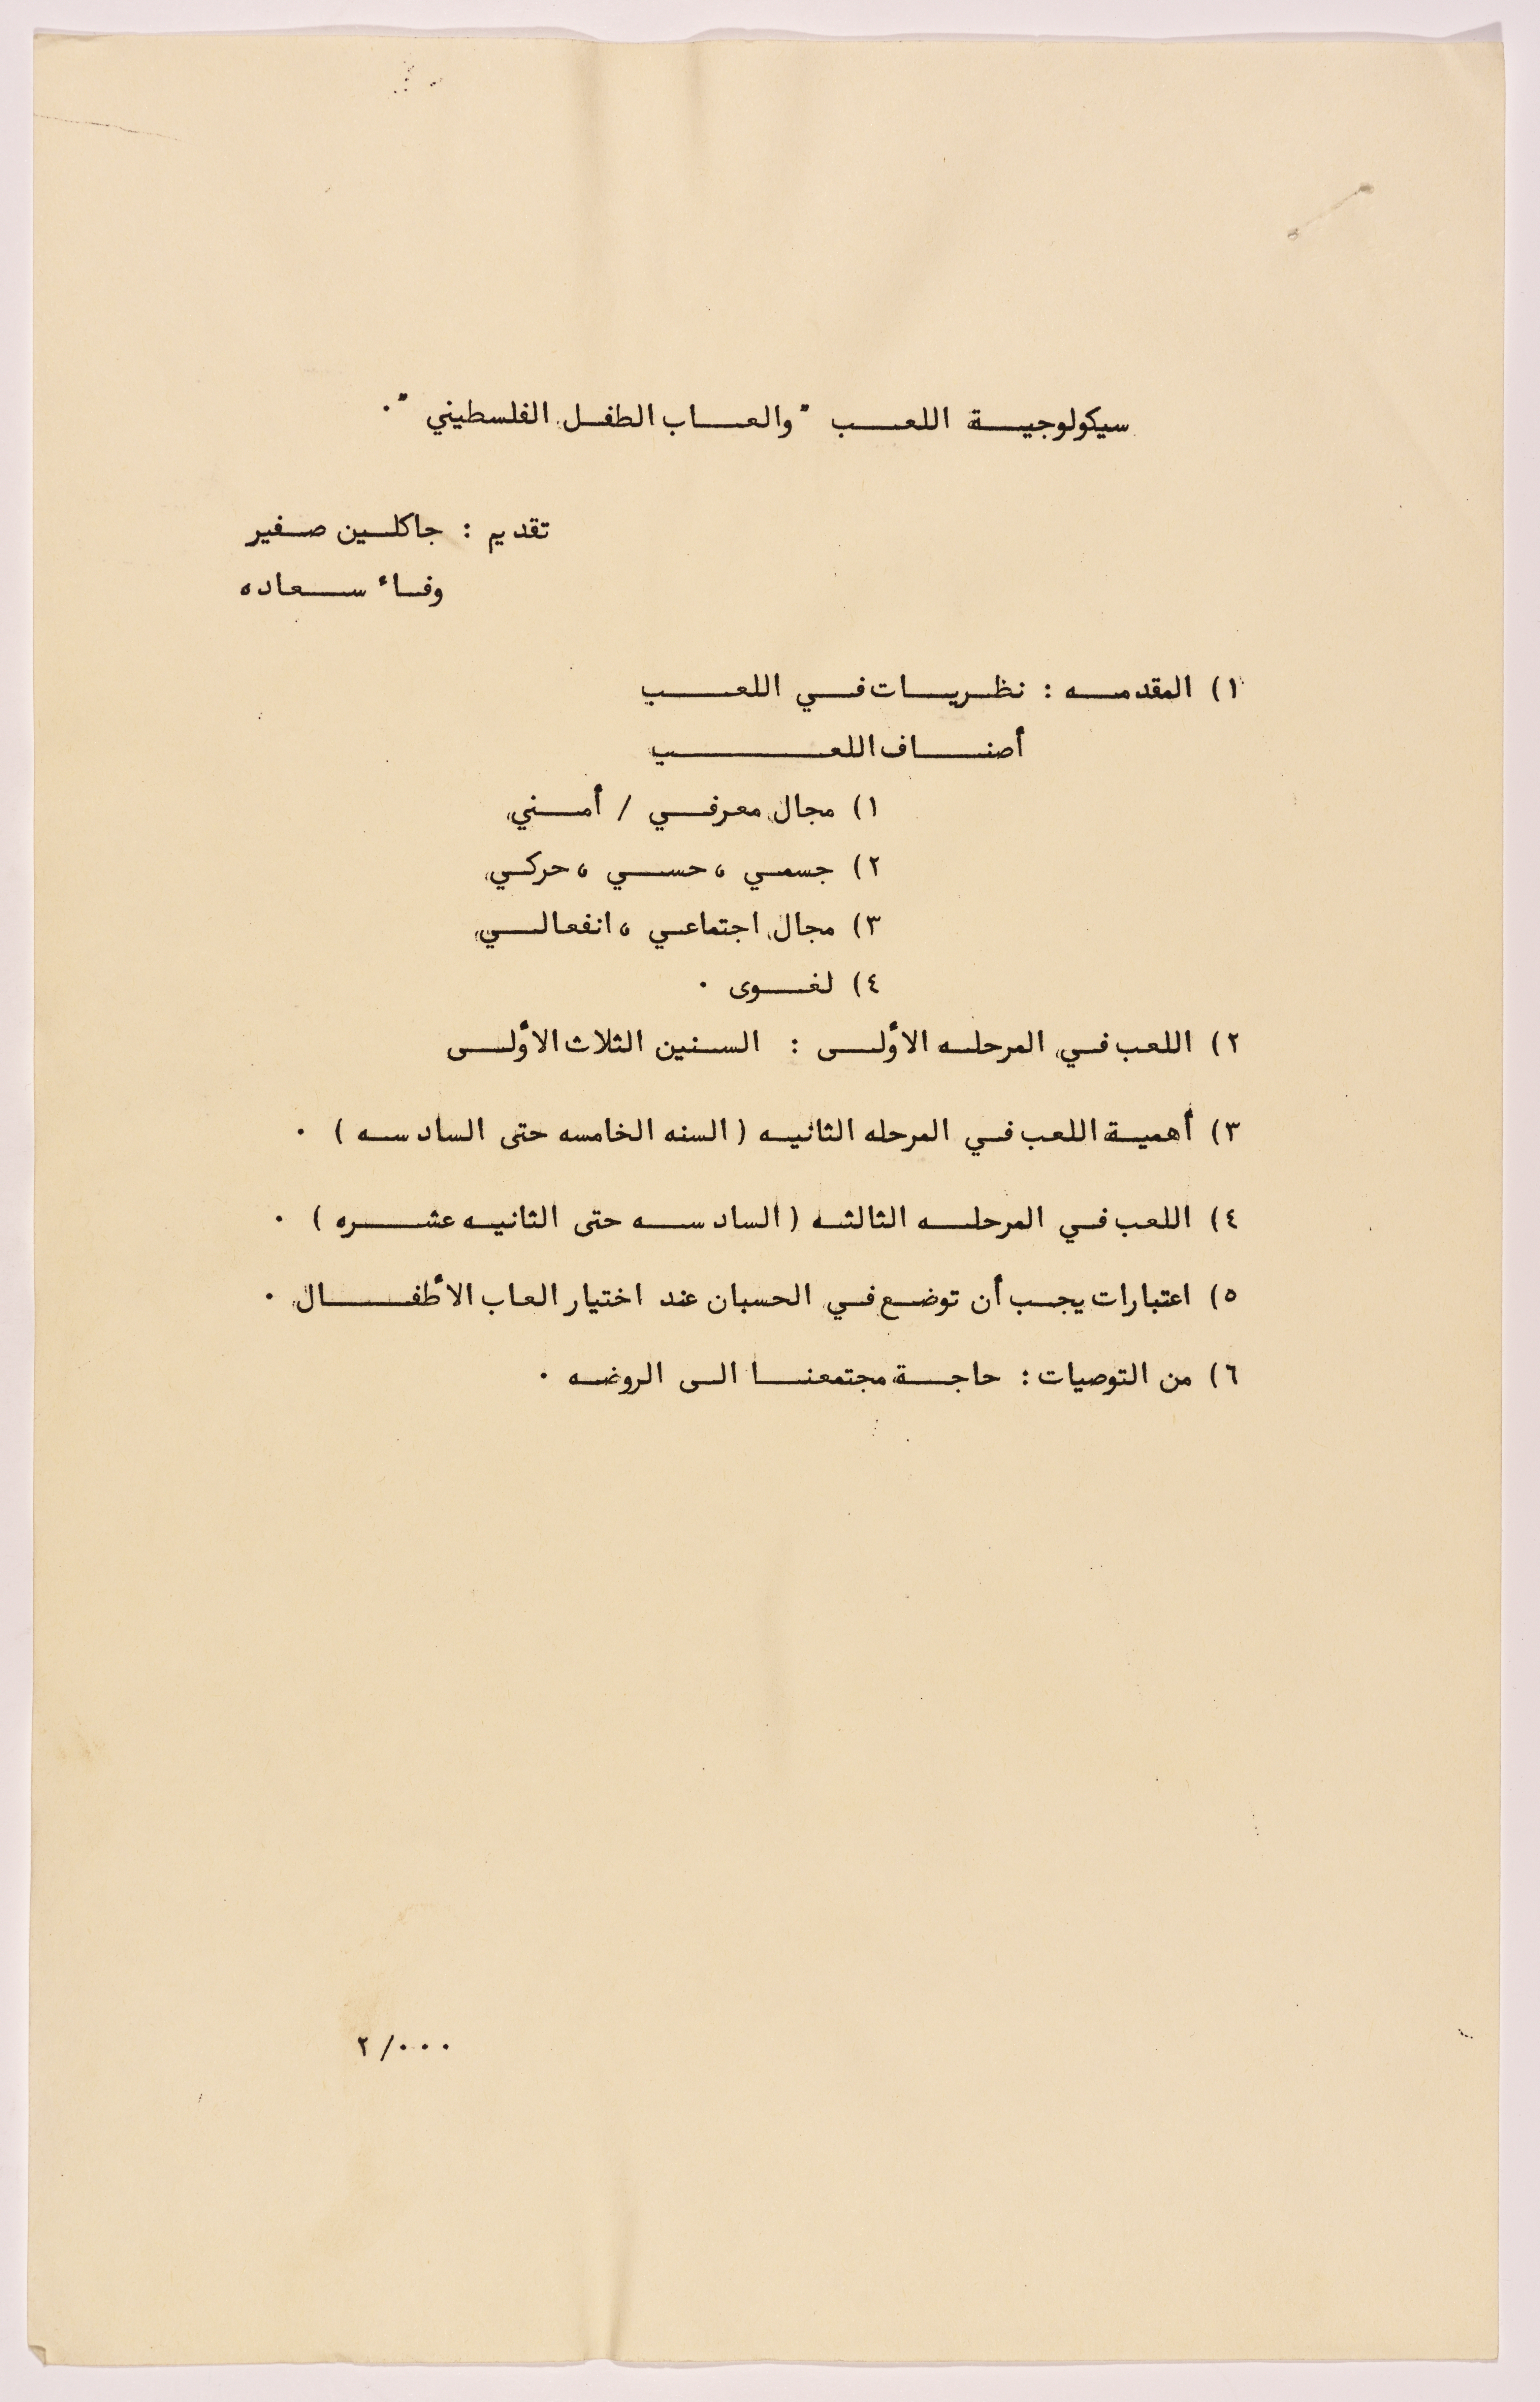 سيكولوجية اللعب "والعاب الطفل الفلسطيني ".
تقديم : جاكلين صفير
وفاء سعاده
١) المقدمه : نظريات في اللعب
أصناف اللعب
١) مجال معرفي / أمني
٢) جسمي ، حسي ، حركي
٣) مجال اجتماعي ، انفعالي
٤) لغوى .
٢) اللعب في المرحله الأولى : السنين الثلاث الأولى
٣) أهمية اللعب في المرحله الثانيه ( السنه الخامسه حتى السادسه ) .
٤) اللعب في المرحله الثالثه ( السادسه حتى الثانيه عشره ) .
٥) اعتبارات يجب أن توضع في الحسبان عند اختيار العاب الأطفال .
٦) من التوصيات : حاجة مجتمعنا الى الروضه .
٢/...